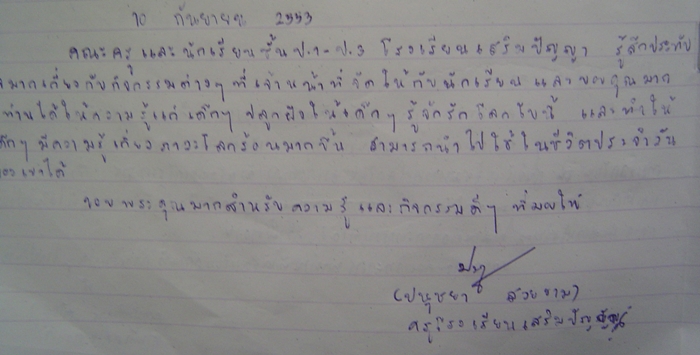 10 กันยายน 2553
คณะครูและนักเรียนชั้นป.1-ป.3 โรงเรียนเสริมปัญญา รู้สึกประทับ
มากเกี่ยวกับกิจกรรมต่างๆที่เจ้าหน้าที่จัดให้กับนักเรียน และขอบคุณมาก
ท่านได้ให้ความรู้แก่เด็กๆ ปลูกฝังให้เด็กๆ รู้จักรักโลกใบนี้ และทำให้
เด็กๆ มีความรู้เกี่ยวภาวะโลกร้อนมากขึ้น สามารถนำไปใช้ในชีวิตประจำวัน
ของเขาได้
ขอบพระคุณมากสำหรับความรู้ และกิจกรรมดีๆ ที่มอบให้
(ปนุชยา สวยงาม)
ครูโรงเรียนเสริมปัญญา